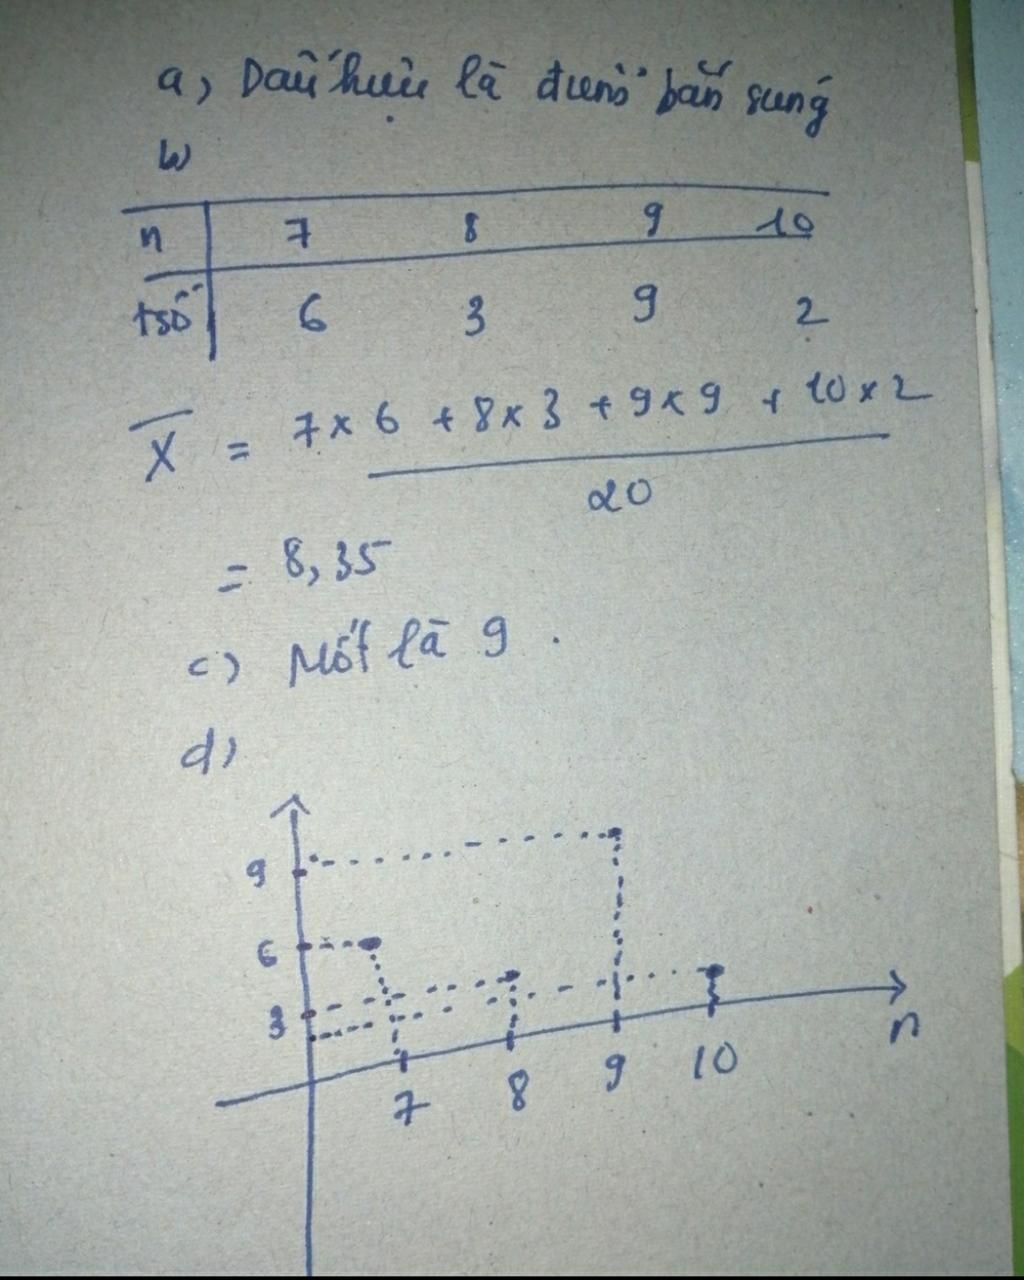 a, Dấu hiệu là điểm bắn súng
b,
n 7 8 9 10
tsố 6 3 9 2
X̄ = 7 x 6 + 8 x 3 + 9 x 9 + 10 x 2
20
= 8,35
c) Mốt là 9 .
d)
9
6
3
n
7 8 9 10